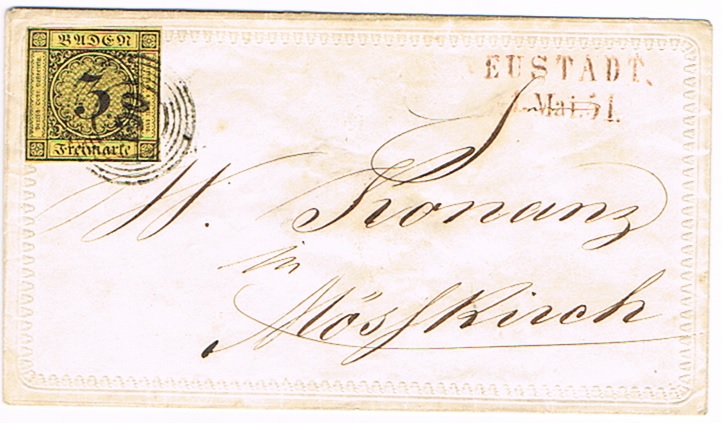 BADEN
3
Freimarke
EUSTADT.
Mai. 51.
W. Konanz
in
Mösskirch